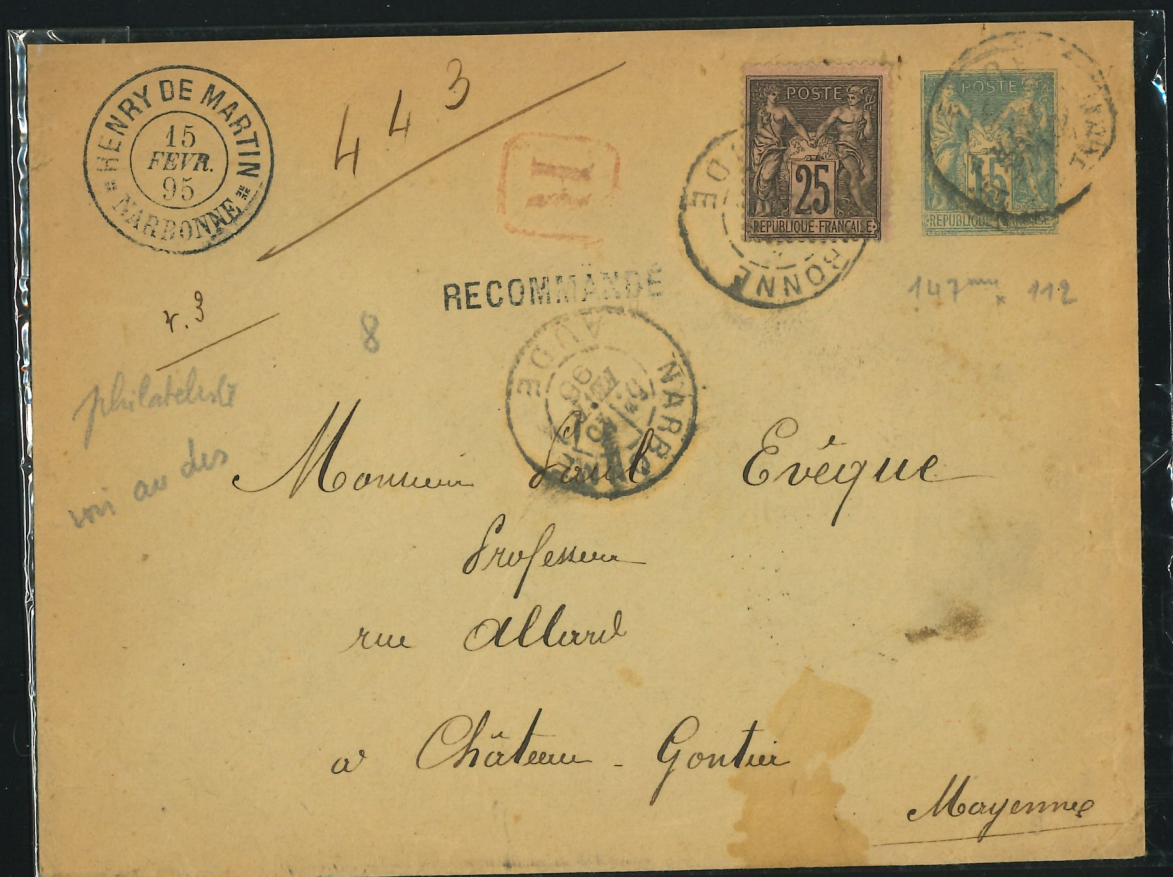 HENRY DE MARTIN
15
FEVR.
95
NARBONNE
443
R
POSTE
25
REPUBLIQUE FRANÇAISE
POSTE
15
REPUBLIQUE FRANÇAISE
NARBONNE
AUDE
RECOMMANDÉ
147mm x 112
r. 3
8
philateliste
voir au dos
NARBONNE
AUDE
95
Monsieur Paul Evêque
Professeur
rue Allard
a Château - Gontier
Mayenne